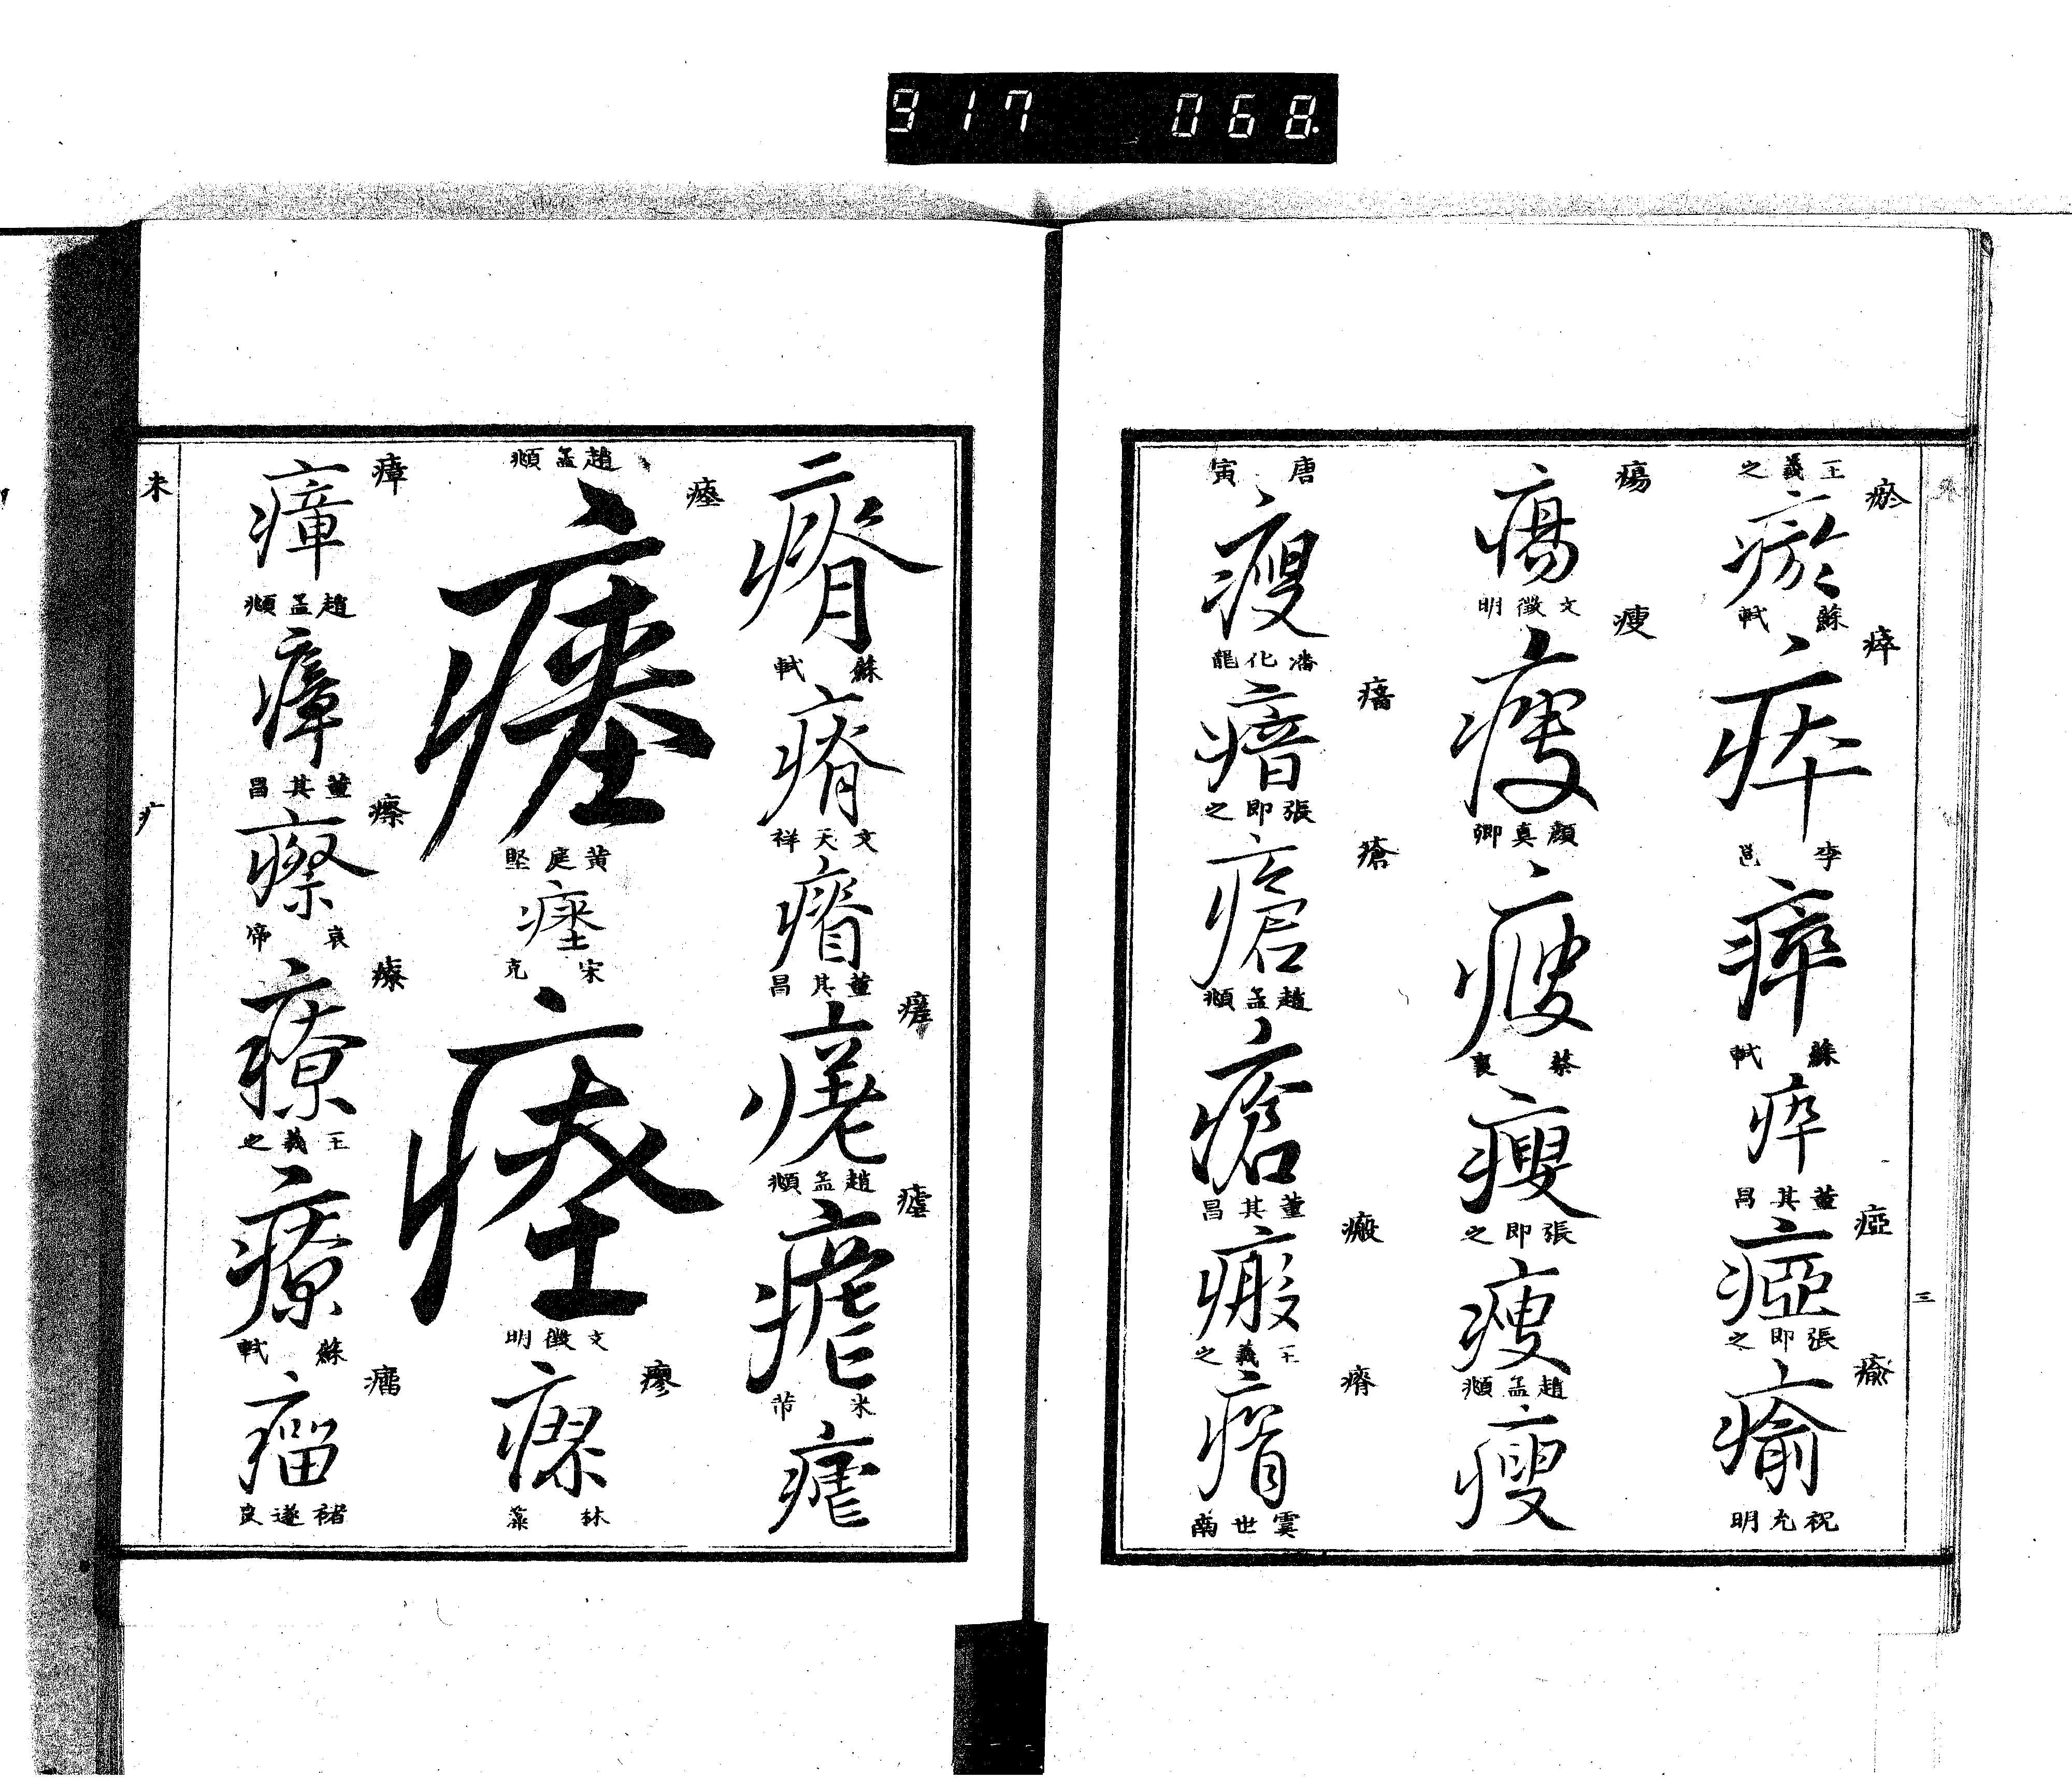 917 068.
王羲之
瘀
瘀
蘇軾
瘁
瘁
李邕
瘁
蘇軾
瘁
董其昌
瘂
瘂
張即之
瘉
瘉
祝允明
三
瘍
瘍
文徵明
瘦
瘦
顏真卿
瘦
蔡襄
瘦
張即之
瘦
趙孟頫
瘦
唐寅
瘦
潘化龍
瘖
瘖
張即之
瘡
瘡
趙孟頫
瘡
董其昌
瘢
瘢
王羲之
瘠
瘠
虞世南
瘠
蘇軾
瘠
文天祥
瘠
董其昌
瘥
瘥
趙孟頫
瘧
瘧
米芾
瘧
趙孟頫
瘞
瘞
黃庭堅
瘞
宋克
瘞
文徵明
瘳
瘳
林藻
瘴
瘴
趙孟頫
瘴
董其昌
瘵
瘵
哀帝
療
療
王羲之
療
蘇軾
瘤
瘤
褚遂良
未
疒